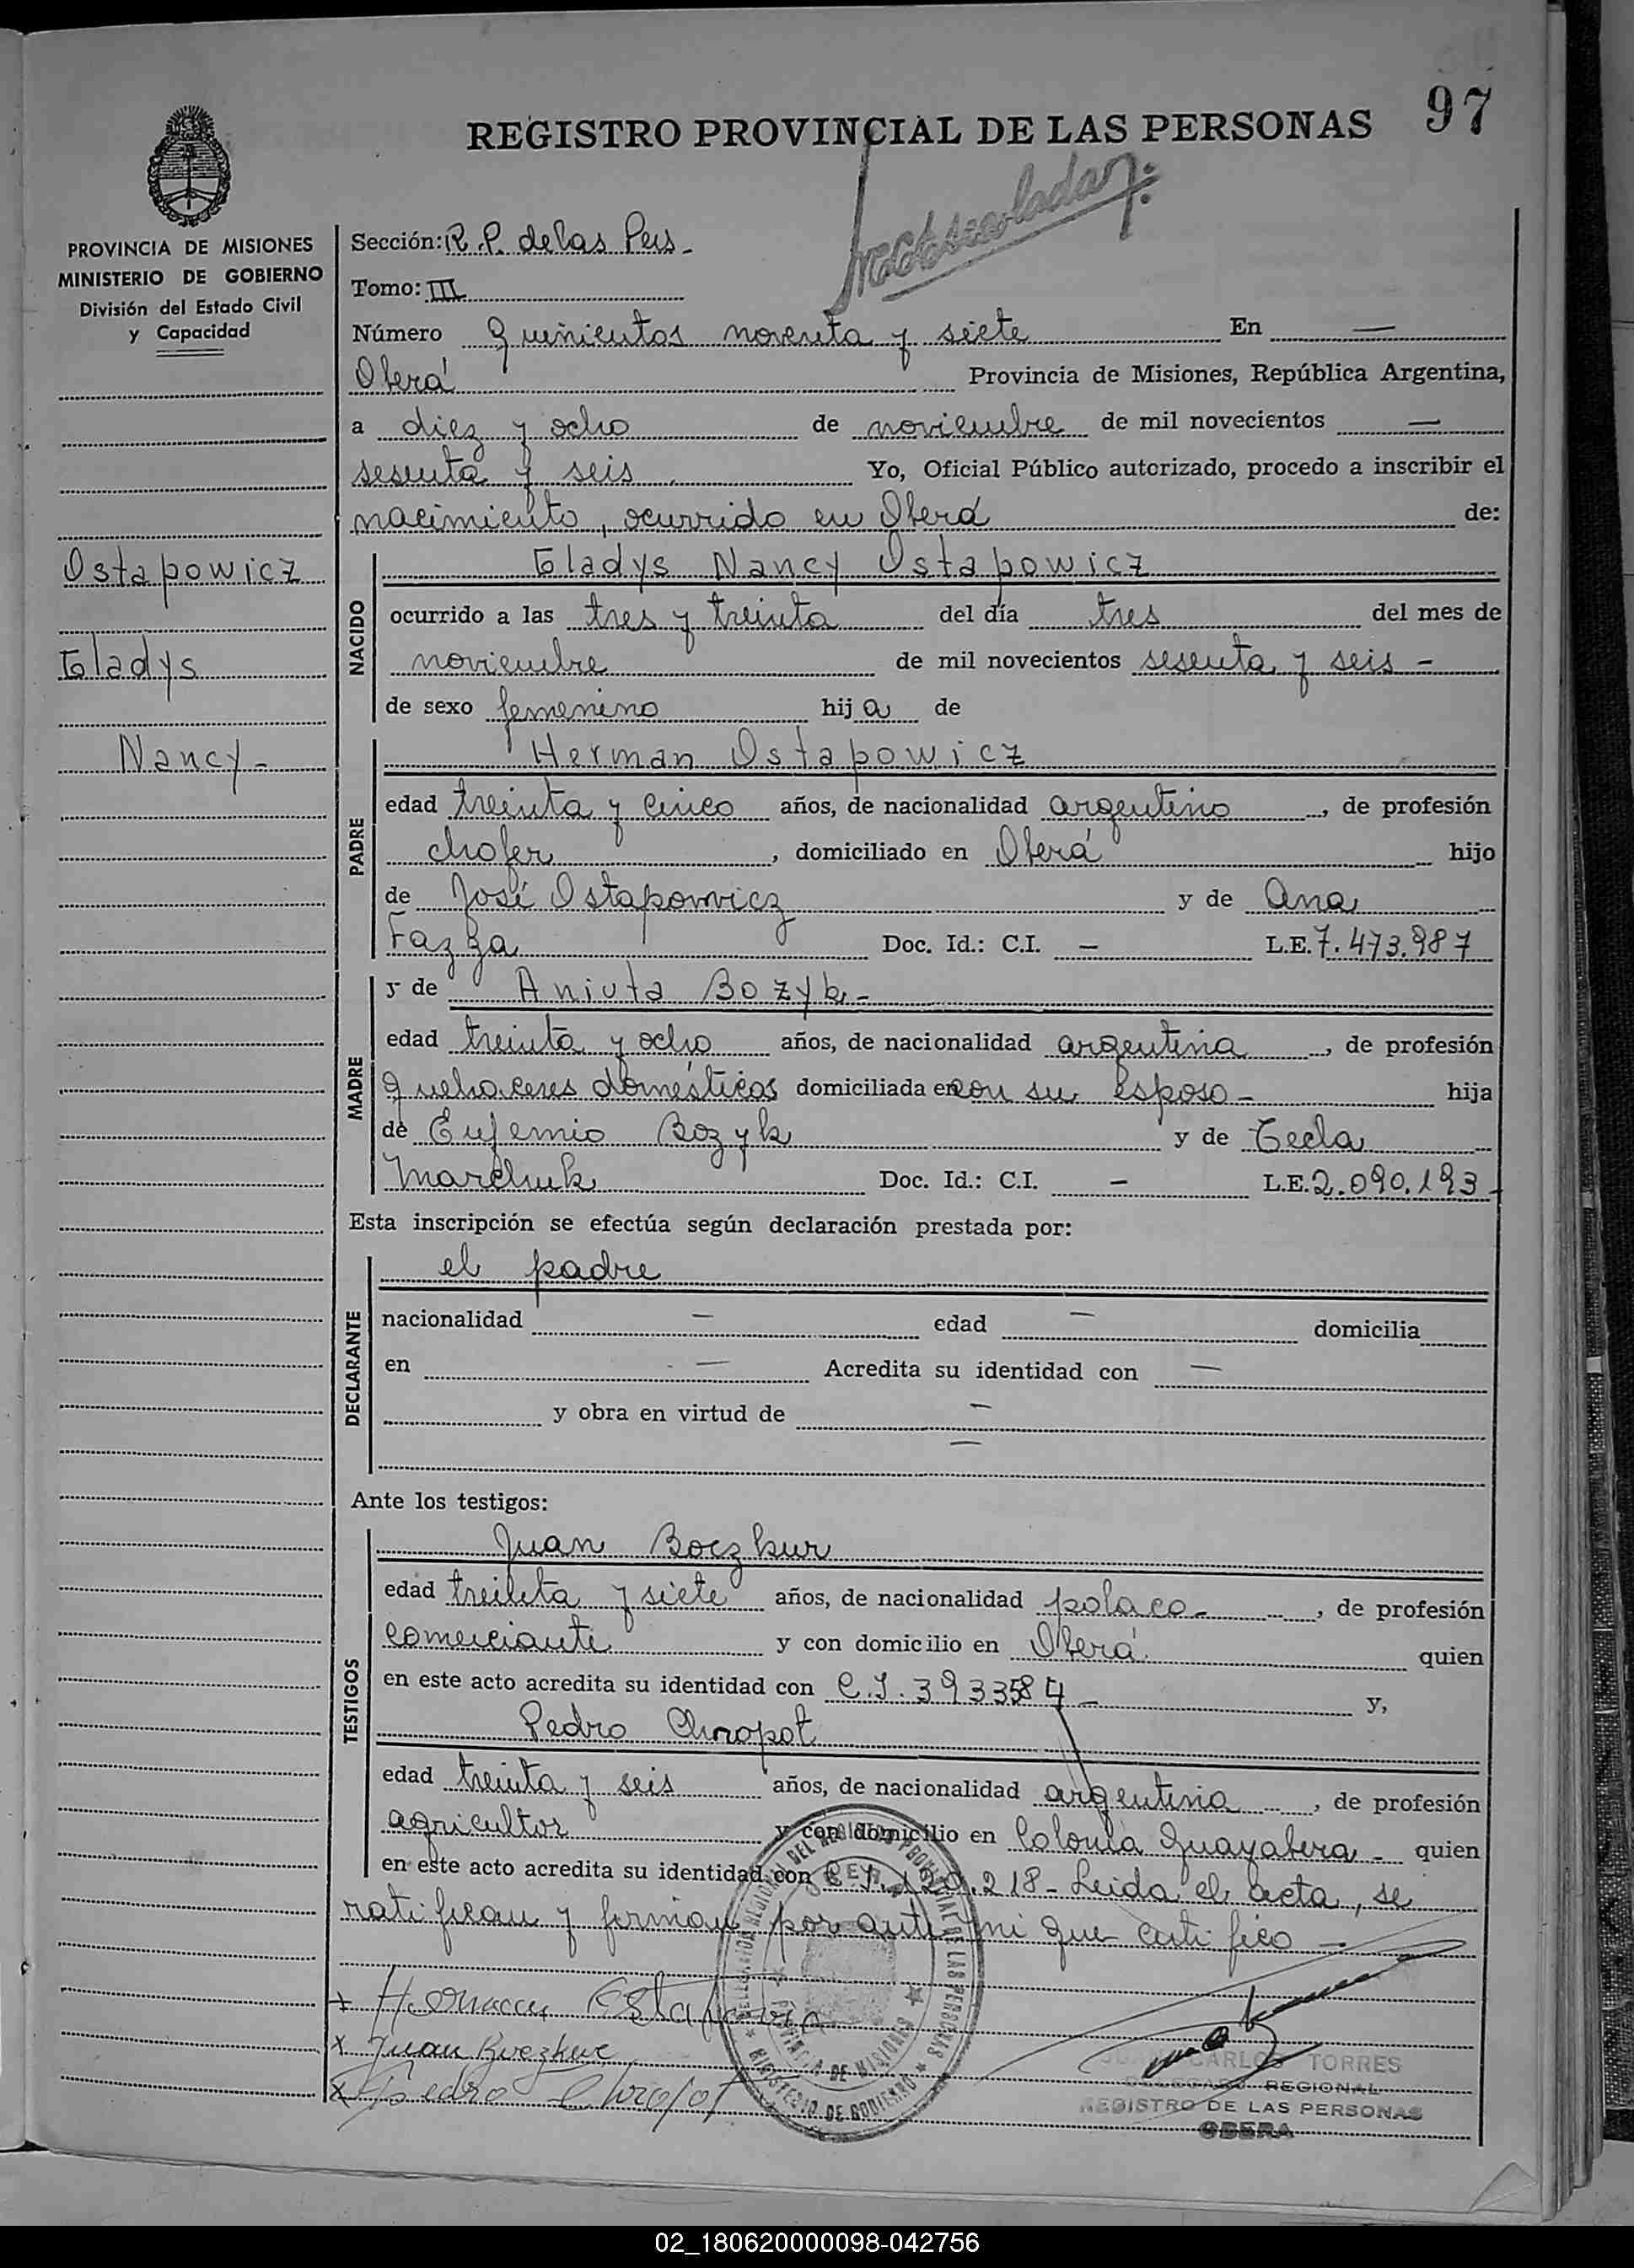 97
REGISTRO PROVINCIAL DE LAS PERSONAS
PROVINCIA DE MISIONES
MINISTERIO DE GOBIERNO
División del Estado Civil
y Capacidad
Ostapowicz
Gladys
Nancy-
Sección: R.P. de las Pers-
Tomo: III
Número Quinientos noventa y siete En —
Oberá Provincia de Misiones, República Argentina,
a diez y ocho de noviembre de mil novecientos —
sesenta y seis Yo, Oficial Público autorizado, procedo a inscribir el
nacimiento, ocurrido en Oberá de:
NACIDO
Gladys Nancy Ostapowicz
ocurrido a las tres y treinta del día tres del mes de
noviembre de mil novecientos sesenta y seis -
de sexo femenino hija de
PADRE
Herman Ostapowicz
edad treinta y cinco años, de nacionalidad argentino, de profesión
chofer, domiciliado en Oberá hijo
de José Ostapowicz y de Ana
Fazza Doc. Id.: C.I. — L.E. 7.473.987
MADRE
y de Aniuta Bozyk-
edad treinta y ocho años, de nacionalidad argentina, de profesión
quehaceres domésticos domiciliada en con su esposo- hija
de Eufemio Bozyk y de Tecla
Marchuk Doc. Id.: C.I. — L.E. 2.090.193-
Esta inscripción se efectúa según declaración prestada por:
DECLARANTE
el padre
nacionalidad — edad — domicilia
en — Acredita su identidad con —
y obra en virtud de —
—
Ante los testigos:
TESTIGOS
Juan Boczkur
edad treinta y siete años, de nacionalidad polaco-, de profesión
comerciante y con domicilio en Oberá quien
en este acto acredita su identidad con C.I. 393358 4- y,
Pedro Chropot
edad treinta y seis años, de nacionalidad argentina, de profesión
agricultor y con domicilio en Colonia Guayabera- quien
en este acto acredita su identidad con C.I. 120.218- Leida el acta, se
ratifican y firman por ante mi que certifico -
x Herman Ostapowicz
x Juan Boczkur
x Pedro Chropot
DELEGACION REGIONAL DEL REGISTRO PROVINCIAL DE LAS PERSONAS
OBERA
PROVINCIA DE MISIONES
MINISTERIO DE GOBIERNO
JUAN CARLOS TORRES
DELEGADO REGIONAL
REGISTRO DE LAS PERSONAS
OBERA
02_180620000098-042756